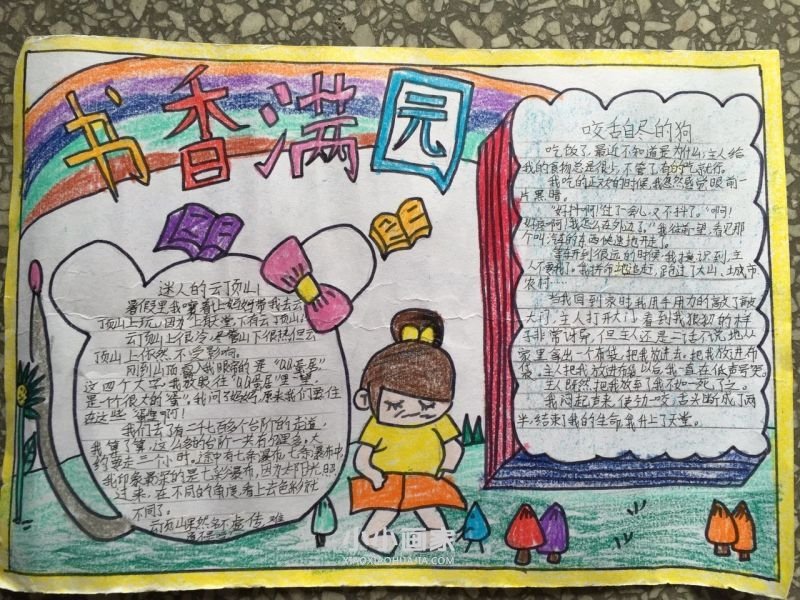 书香满园
迷人的云顶山
暑假里,我

云顶山上很冷,尽管山下很热,但云
顶山上依然不受影响。
刚到山顶,直入我眼帘的是“QQ蛋居”
这四个大字,我放眼往“QQ蛋居”里一望,
是一个个很大的“蛋”,我问了妈妈,原来我们要住
在这些“蛋”里啊!
我们去了有二千七百多个台阶的走道,
我算了算,这么多的台阶一共有
约要走三个小时,途中有七条瀑布,七条瀑布中,
我印象最深的是七彩瀑布,因为太阳光照
过来,在不同的角度,看上去色彩就
不同了。
云顶山果然名不虚传
咬舌自尽的狗
吃饭了,最近不知道是为什么,主人给
我的食物总是很少,不管了,有的吃就好。
我吃的正欢的时候,我忽然感觉眼前一
片黑暗。
“好抖啊!过了一会儿又不抖了。”“啊!
好疼啊!我怎么在外边了。”我往前一望,看见那
个叫汽车的东西快速地开走。
等开到很远的时候,我才意识到,主
人不要我了。我拼命地追赶,跑过了大山、城市
农村……
当我回到家时,我用手用力的敲了敲
大门,主人打开门,看到我狼狈的样
子非常讶异,但主人还是二话不说,地从
家里拿出一个布袋,把我放进去,把我放进布
袋。主人把我放进布袋以后,我一直在低声哭哭,
主人既然把我放车了,我不如一死了之。
我闷起声来,使劲一咬,舌头断成了两
半,结束了我的生命,我升上了天堂。
小小画家
XIAOXIAOHUAJIA.COM